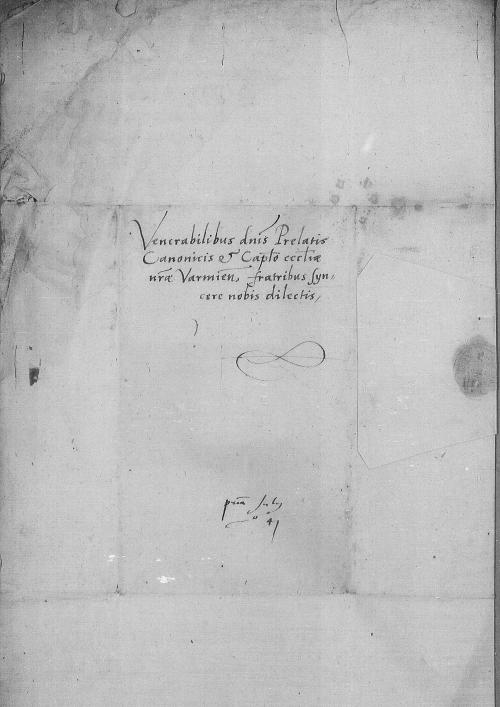 Venerabilibus dnīs Prelatis
Canonicis & Capło eccłiæ
nr̄æ Varmień, fratribus syn,
cere nobis dilectis,
41